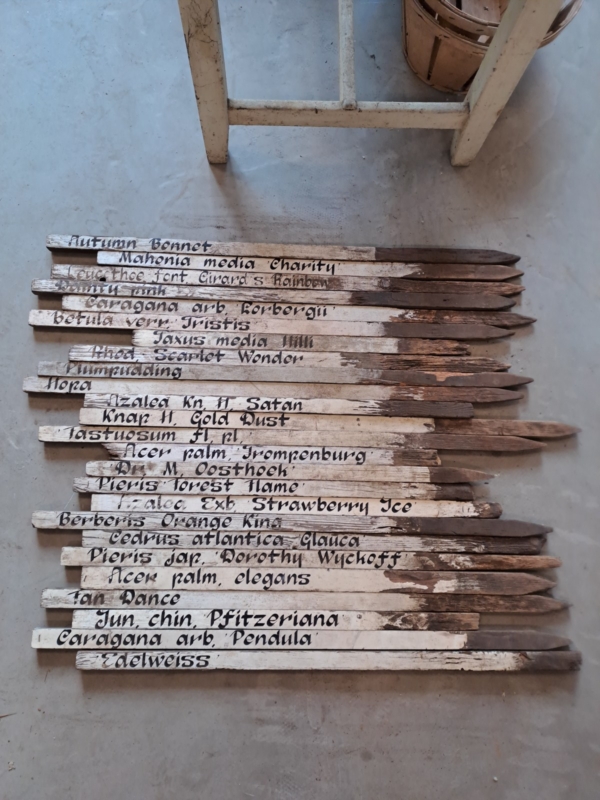 Autumn Bonnet
Mahonia media Charity
Leucothee font. Girard's Rainbow
Dainty pink
Caragana arb. Lorbergii
Betula verr. Tristis
Taxus media Hilli
Rhod. Scarlet Wonder
Plumpudding
Hopa
Azalea Kn. H. Satan
Knap H. Gold Dust
Fastuosum fl. pl.
Acer palm. Trompenburg
Dr. M. Oosthoek
Pieris forest flame
Azalea Exb. Strawberry Ice
Berberis Orange King
Cedrus atlantica Glauca
Pieris jap. Dorothy Wyckoff
Acer palm. elegans
Tan Dance
Jun. chin. Pfitzeriana
Caragana arb. Pendula
Edelweiss